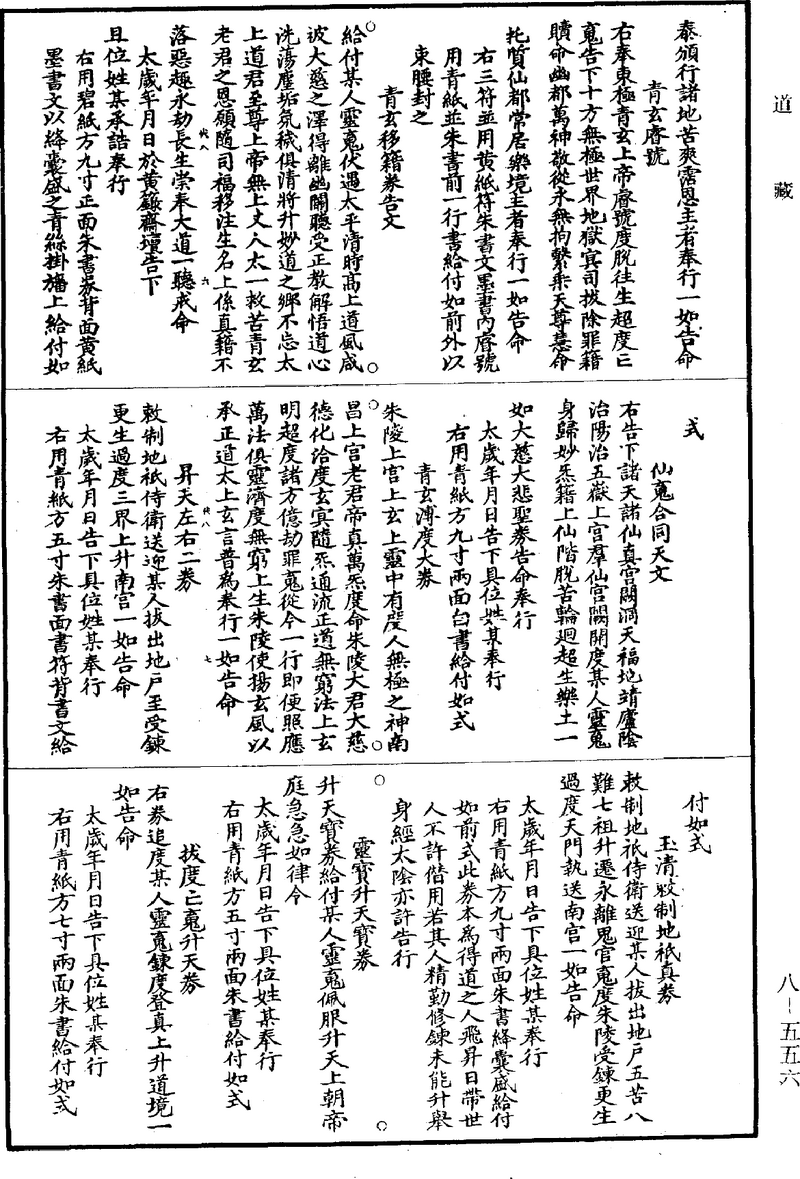 道藏
泰頒行諸地苦爽霑恩主者奉行一如告命
青玄睿號
右奉東極青玄上帝睿號度脫往生超度亡
䰟告下十方無極世界地獄㝠司拔除罪籍
贖命幽都萬神敬從永無拘繫乘天尊慧命
托質仙都常居樂境主者奉行一如告命
右三符並用黃紙符朱書文墨書內睿號
用青紙並朱書前一行書給付如前外以
束腰封之
青玄移籍券告文
給付某人靈䰟伏遇太平清時高上道風咸
被大慈之澤得離幽關聽受正教解悟道心
洗蕩塵垢氛穢俱清將升妙道之鄉不忘太
上道君至尊上帝無上丈人太一救苦青玄
老君之恩願隨司福移注生名上係真籍不
落惡趣永劫長生崇奉大道一聽戒命
太歲年月日於黃籙齋壇告下
且位姓某承誥奉行
右用碧紙方九寸正面朱書券背面黃紙
墨書文以絳囊盛之青絲掛旛上給付如
式
仙䰟合同天文
右告下諸天諸仙真宮闕洞天福地靖廬陰
治陽治五嶽上宮羣仙宮闕開度某人靈䰟
身歸妙炁籍上仙階脫苦輪迴超生樂土一
如大慈大悲聖券告命奉行
太歲年月日告下具位姓某奉行
右用青紙方九寸兩面白書給付如式
青玄溥度大券
朱陵上宮上玄上靈中有度人無極之神南
昌上宮老君帝真萬炁度命朱陵大君大慈
德化洽度玄㝠隨炁通流正道無窮法上玄
明超度諸方億劫罪䰟從今一行即便照應
萬法俱靈濟度無窮上生朱陵使揚玄風以
承正道太上玄言普為奉行一如告命
昇天左右二券
敕制地祇侍衛送迎某人拔出地戶至受鍊
更生過度三界上升南宮一如告命
太歲年月日告下具位姓某奉行
右用青紙方五寸朱書面書符背書文給
付如式
玉清敕制地祇真券
敕制地祇侍衛送迎某人拔出地戶五苦八
難七祖升遷永離鬼官䰟度朱陵受鍊更生
過度天門執送南宮一如告命
太歲年月日告下具位姓某奉行
右用青紙方九寸兩面朱書絳囊盛給付
如前式此券本為得道之人飛昇日帶世
人不許僭用若其人精勤修鍊未能升舉
身經太陰亦許告行
靈寶升天寶券
升天寶券給付某人靈䰟佩服升天上朝帝
庭急急如律令
太歲年月日告下具位姓某奉行
右用青紙方五寸兩面朱書給付如式
拔度亡䰟升天券
右券追度某人靈䰟鍊度登真上升道境一
如告命
太歲年月日告下具位姓某奉行
右用青紙方七寸兩面朱書給付如式
八－五五六